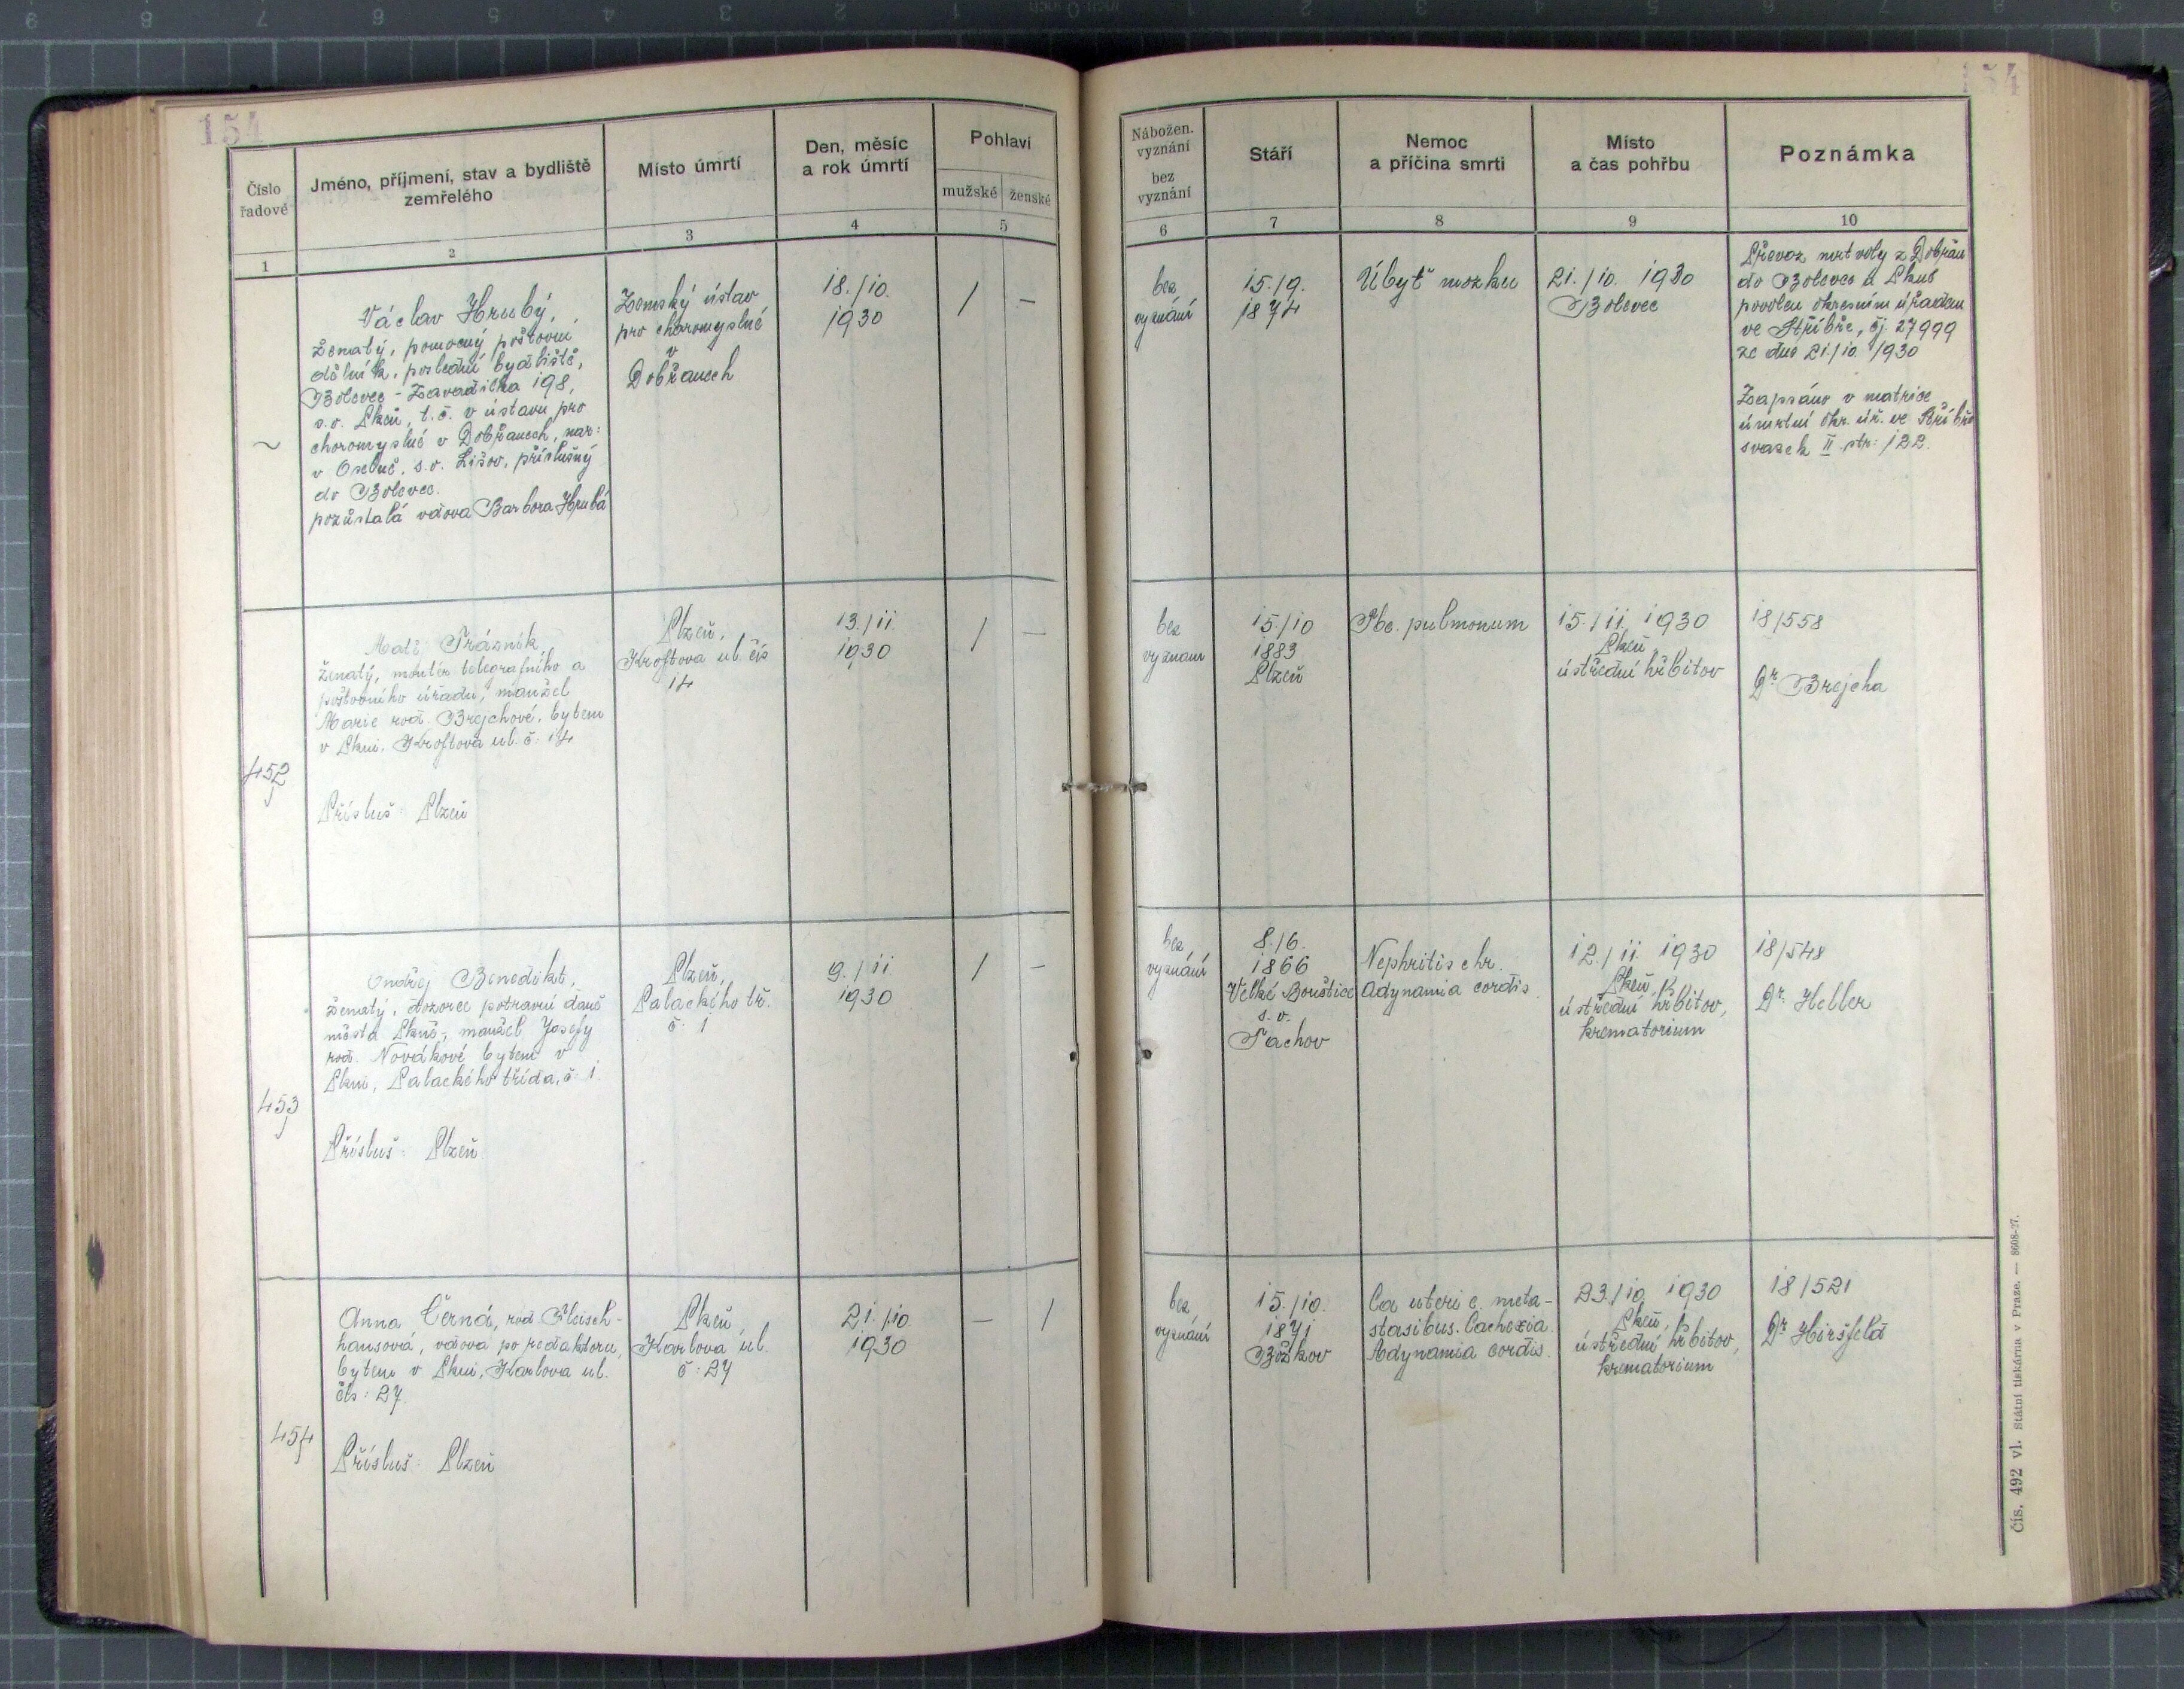 154
154
Číslo
řadové
Jméno, příjmení, stav a bydliště
zemřelého
Místo úmrtí
Den, měsíc
a rok úmrtí
Pohlaví
mužské
ženské
1
2
3
4
5
Nábožen.
vyznání
bez
vyznání
Stáří
Nemoc
a příčina smrti
Místo
a čas pohřbu
Poznámka
6
7
8
9
10
Václav Hrubý,
ženatý, pomocný poštovní
dělník, poslední bydliště,
Bolevec - Zavadilka 198,
s.o. Plzeň, t.č. v ústavu pro
choromyslné v Dobřanech, nar:
v Oselně, s.o. Lišov, příslušný
do Bolevec.
pozůstalá vdova Barbora Hrubá
Zemský ústav
pro choromyslné
v
Dobřanech
18./10.
1930
/
—
bez
vyznání
15./9.
1874
Úbyť mozku
21./10. 1930
Bolevec
Převoz mrtvoly z Dobřan
do Bolevce u Plzně
povolen okresním úřadem
ve Stříbře, čj. 27999
ze dne 21./10. 1930
Zapsáno v matrice
úmrtní okr. úř. ve Stříbře
svazek II str: 122.
452
Matě Trázník,
ženatý, montér telegrafního a
poštovního úřadu, manžel
Marie rod. Brejchové, bytem
v Plzni, Kroftova ul. č: 14
Přísluš: Plzeň
Plzeň,
Kroftova ul. čís
14
13./11.
1930
/
—
bez
vyznání
15./10
1883
Plzeň
Tbc. pulmonum
15./11. 1930
Plzeň,
ústřední hřbitov
18/558
Dr Brejcha
453
Ondřej Benedikt,
ženatý, dozorce potravní daně
města Plzně, manžel Josefy
rod. Novákové bytem v
Plzni, Palackého třída, č: 1.
Přísluš: Plzeň
Plzeň,
Palackého tř.
č: 1
9./11.
1930
/
—
bez
vyznání
8./6.
1866
Velké Bouštice
s.o.
Tachov
Nephritis chr.
Adynamia cordis.
12./11. 1930
Plzeň,
ústřední hřbitov,
krematorium
18/548
Dr. Heller
454
Anna Černá, rod. Fleisch-
hansová, vdova po redaktoru,
bytem v Plzni, Karlova ul.
čís: 27.
Přísluš: Plzeň
Plzeň,
Karlova ul.
č: 27
21./10.
1930
—
/
bez
vyznání
15./10.
1871
Božkov
Ca uteri c. meta-
stasibus. Cachexia.
Adynamia cordis.
23./10. 1930
Plzeň,
ústřední hřbitov,
krematorium
18/521
Dr Hiršfeld
Čís. 492 vl. Státní tiskárna v Praze. — 8608-27.